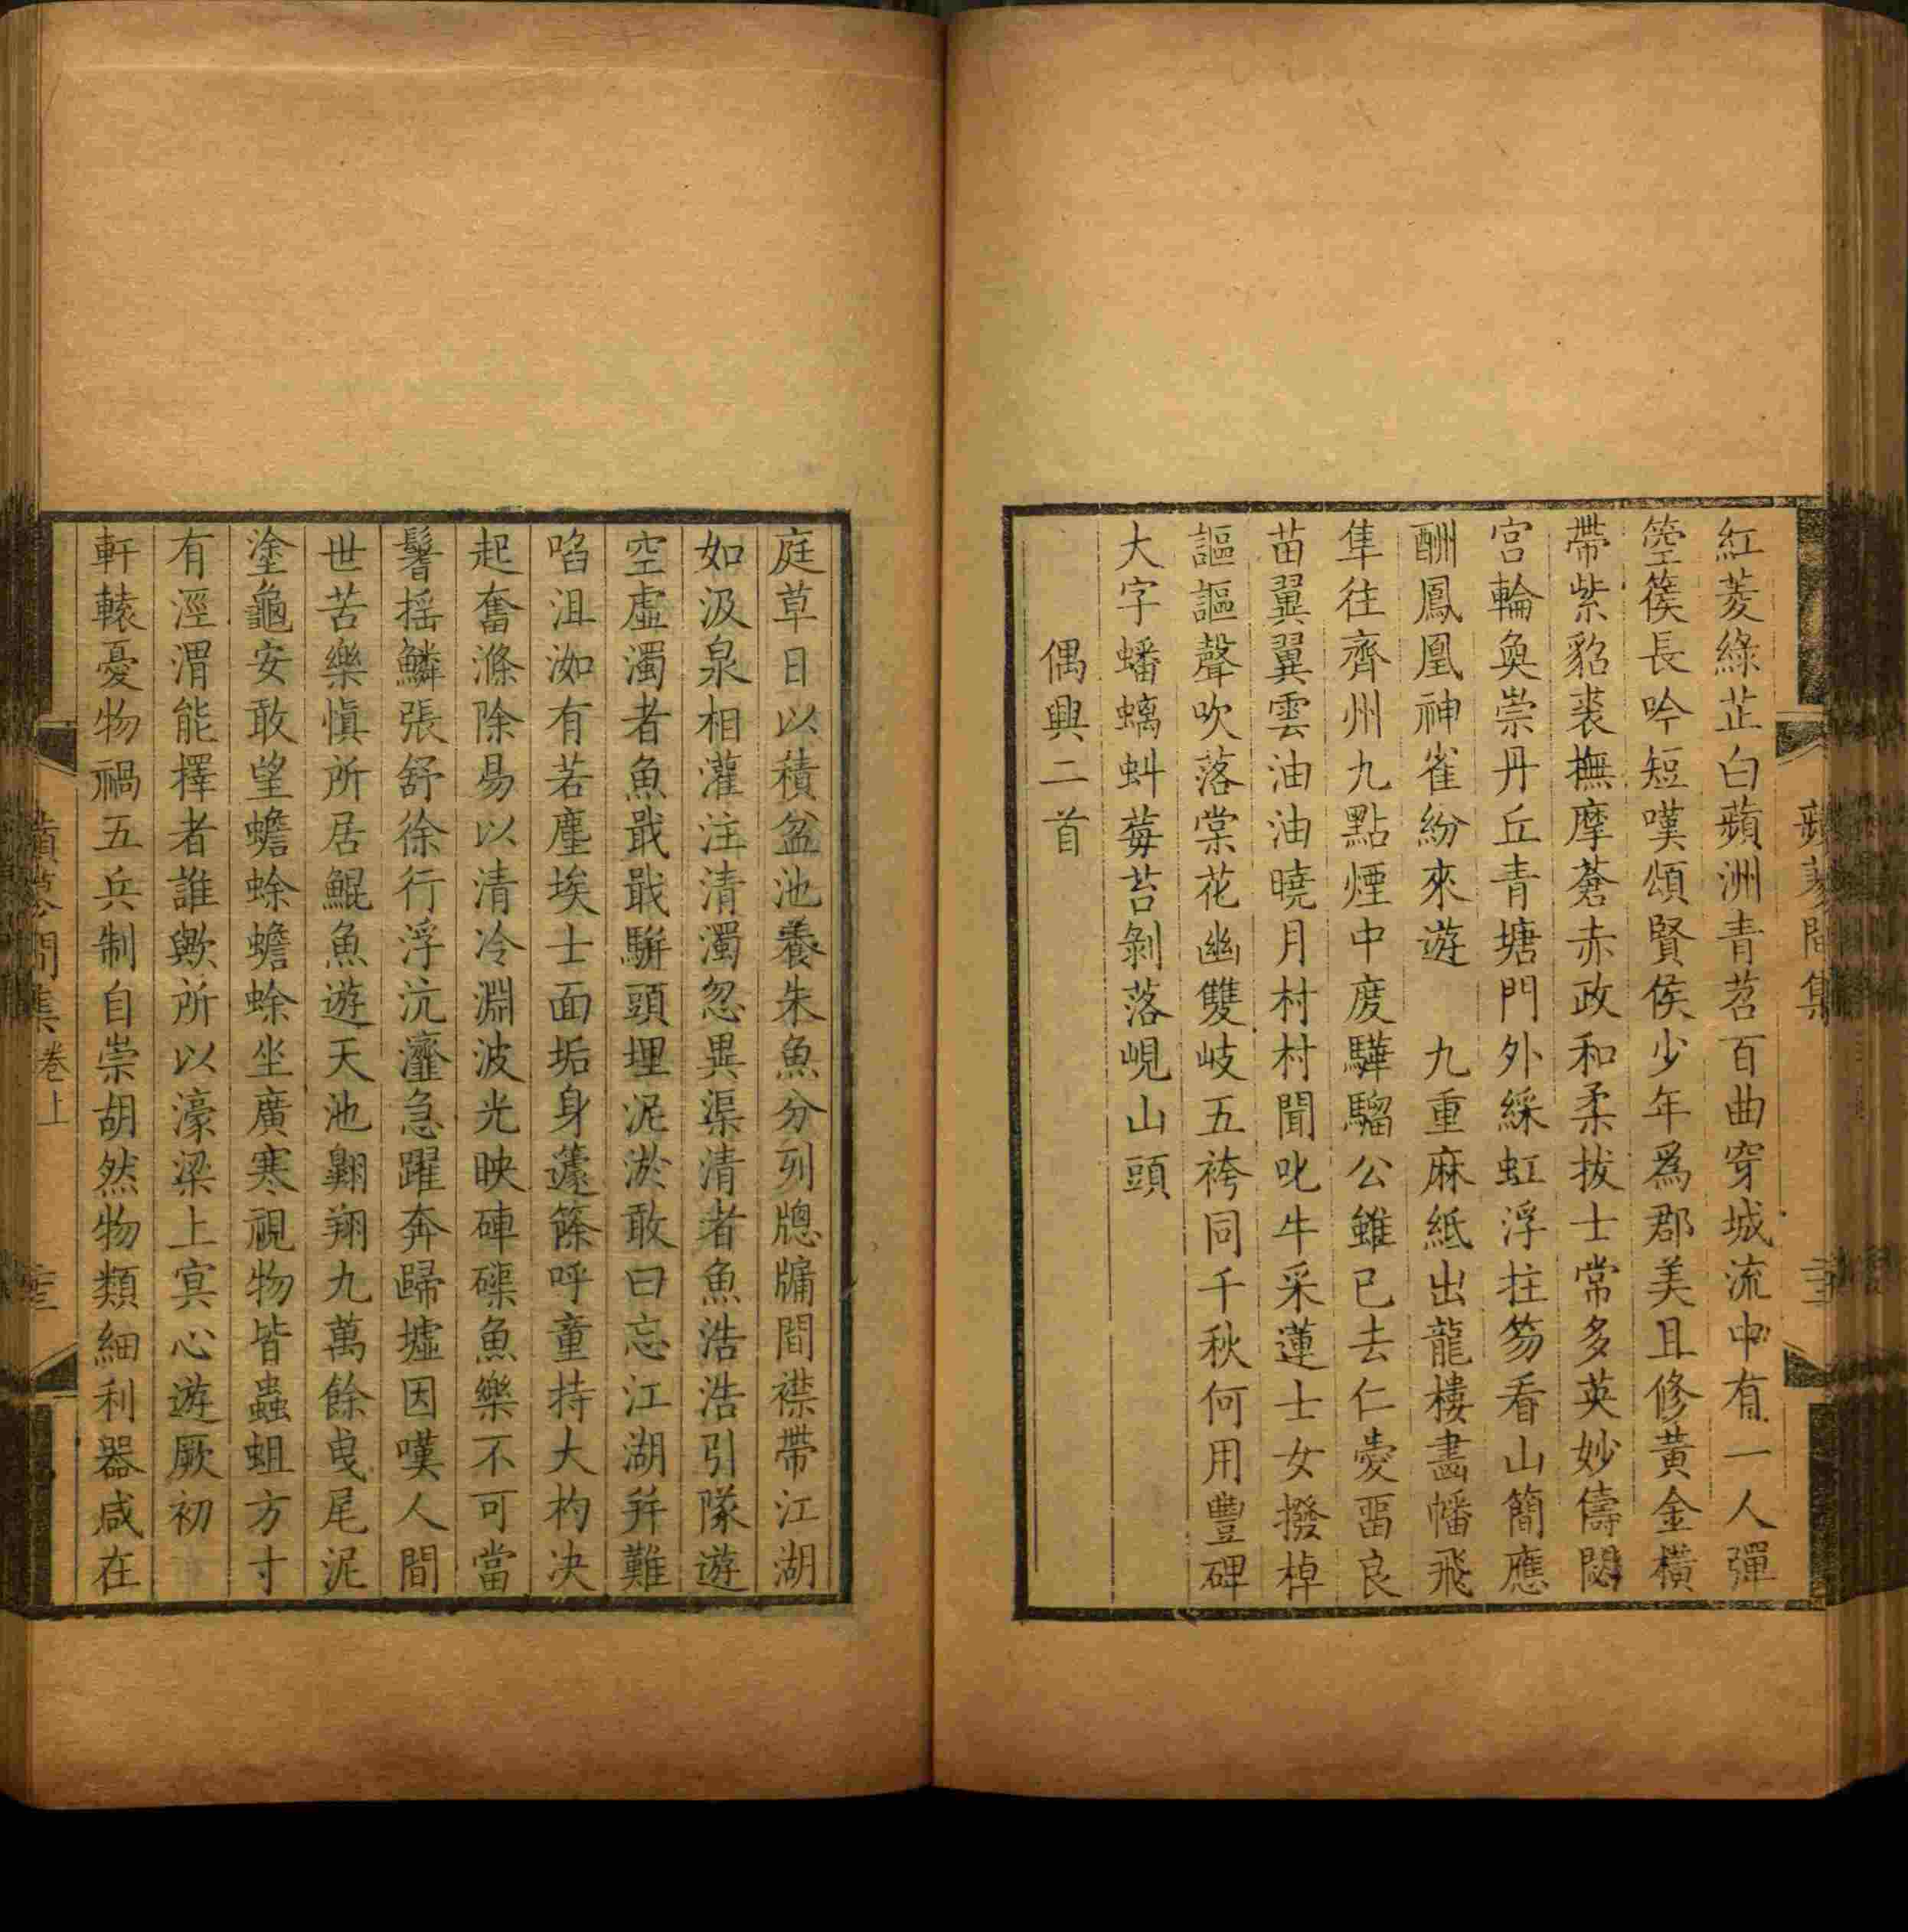 紅菱綠芷白蘋洲青苕百曲穿城流中有一人彈
箜篌長吟短嘆頌賢侯少年爲郡美且修黃金橫
帶紫貂裘撫摩蒼赤政和柔拔士常多英妙儔閟
宮輪奐崇丹丘青塘門外綵虹浮拄笏看山簡應
酬鳳凰神雀紛來遊　九重麻紙出龍樓畵幡飛
隼往齊州九點煙中度驊騮公雖已去仁愛畱良
苗翼翼雲油油曉月村村聞叱牛采蓮士女撥棹
謳謳聲吹落棠花幽雙岐五袴同千秋何用豐碑
大字蟠螭蚪莓苔剝落峴山頭
偶興二首
庭草日以積盆池養朱魚分列牕牖間襟帶江湖
如汲泉相灌注清濁忽異渠清者魚浩浩引隊遊
空虛濁者魚戢戢駢頭埋泥淤敢曰忘江湖并難
啗沮洳有若塵埃士面垢身籧篨呼童持大杓决
起奮滌除易以清冷淵波光映硨磲魚樂不可當
鬐揺鱗張舒徐行浮沆瀣急躍奔歸墟因嘆人間
世苦樂愼所居鯤魚遊天池翺翔九萬餘曳尾泥
塗龜安敢望蟾蜍蟾蜍坐廣寒視物皆蟲蛆方寸
有涇渭能擇者誰歟所以濠梁上寘心遊厥初
軒轅憂物禍五兵制自崇胡然物類細利器咸在
蘋蓼閒集
卷上